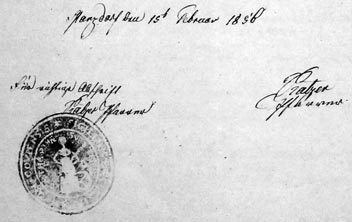 Panzdorf den 15t Februar 1856
Für richtige Abschrift
Ratzer Pfarrer
Ratzer
Pfarrer